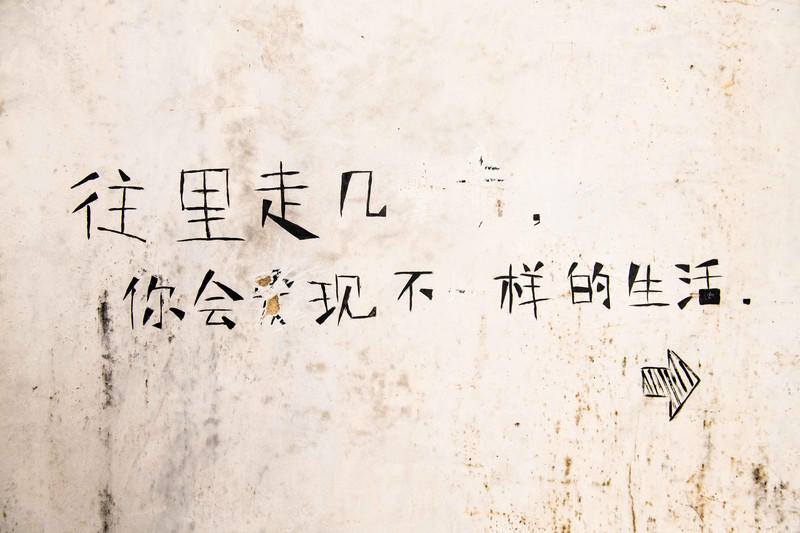 往里走几 ，
你会 现不 样的生活.